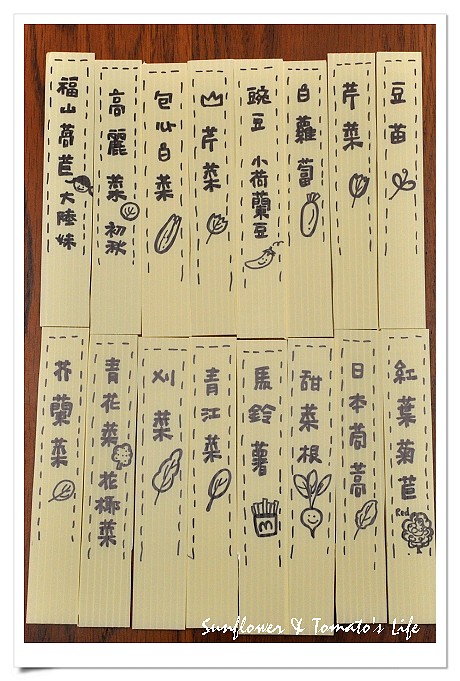 福山萵苣 大陸妹
高麗菜 初秋
包心白菜
芹菜
豌豆 小荷蘭豆
白蘿蔔
芹菜
豆苗
芥蘭菜
青花菜 花椰菜
刈菜
青江菜
馬鈴薯
M
甜菜根
日本茼蒿
紅葉菊苣
Red
Sunflower & Tomato's Life